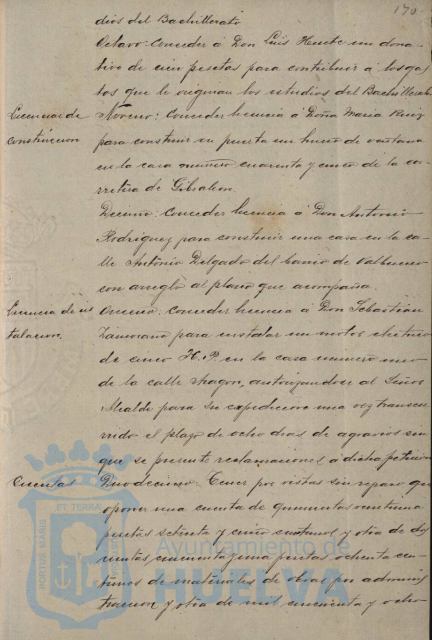 170
dios del Bachillerato
Octavo: Conceder á Don Luis Huete un dona-
tivo de cien pesetas para contribuir á los gas-
tos que le originan los estudios del Bachillerato
Licencias de
construccion
Noveno: Conceder licencia á Doña Maria Ruiz
para construir su puerta un hueco de ventana
en la casa número cuarenta y cinco de la ca-
rretera de Gibraleon.
Decimo: Conceder licencia á Don Antonio
Rodriguez para construir una casa en la ca-
lle Antonio Delgado del barrio de Valbueno
con arreglo al plano que acompaña.
Licencia de ins
talacion.
Onceno: Conceder licencia á Don Sebastian
Zamorano para instalar un motor electrico
de cinco H.P. en la casa numero nueve
de la calle Aragon, autorizandose al Señor
Alcalde para su expedicion una vez transcu-
rrido el plazo de ocho dias de agravios sin
que se presente reclamaciones á dicha peticion
Cuentas
Duodecimo: Tener por vistas sin reparo que
oponer una cuenta de quinientas veintiuna
pesetas setenta y cinco centimos y otra de dos-
cientas cincuenta y una pesetas ochenta cen-
timos de materiales de obras por adminis-
tracion y otra de mil cincuenta y ocho
PORTUS MARIS ET TERRAE
Ayuntamiento de
HUELVA